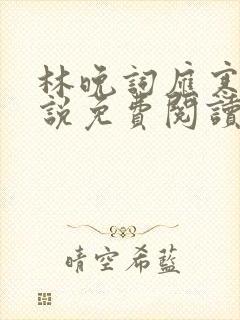 林晚詞雁寒
說免費閱讀
晴空希藍